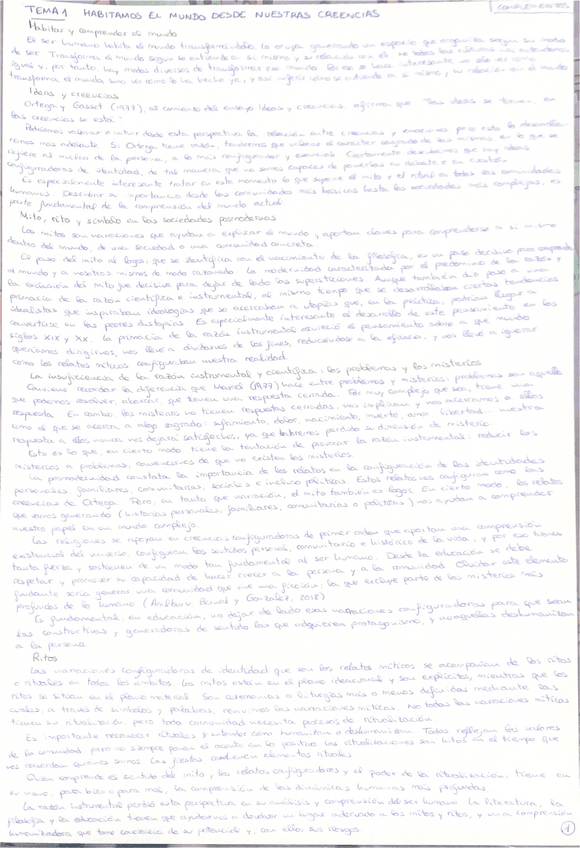 COMPLEMENTOS
TEMA 1 HABITAMOS EL MUNDO DESDE NUESTRAS CREENCIAS
Habitar y comprender el mundo
El ser humano habita el mundo transformándolo, lo ocupa generando un espacio que organiza según su modo
de ser. Transforma el mundo según se entiende a sí mismo, y su relación en él. No todas las culturas nos entendemos
igual y, por tanto, hay modos diversos de transformar ese mundo. Lo es lo interesante no sólo el cómo
transforma el mundo, sino ver cómo lo ha hecho ya, y así inferir cómo se entiende a sí mismo, y su relación en el mundo
Ideas y creencias
Ortega y Gasset (1977), al comienzo del ensayo Ideas y creencias, afirma que "las ideas se tienen, en
las creencias se está".
Podríamos valorar e intuir desde esta perspectiva la relación entre creencias y emociones, pero esto lo desarrolla-
remos más adelante. Si Ortega tiene razón, tendremos que valorar el carácter sagrado de las mismas en lo que se
refiere al núcleo de la persona, a lo más configurador y esencial. Ciertamente descubrimos que hay ideas
configuradoras de identidad, de tal manera que no somos capaces de ponerlas en debate o en cuestión.
Es especialmente interesante tratar en este momento lo que supone el mito y el ritual en todas las comunidades
humanas. Descubrir su importancia desde las comunidades más básicas hasta las sociedades más complejas, es
parte fundamental de la comprensión del mundo actual.
Mito, rito y símbolo en las sociedades posmodernas
Los mitos son narraciones que ayudan a explicar el mundo y aportan claves para comprenderse a sí mismo
dentro del mundo, de una sociedad o una comunidad concreta.
El paso del mito al logos, que se identifica con el nacimiento de la filosofía, es un paso decisivo para comprender
el mundo y a nosotros mismos de modo razonado. La modernidad caracterizada por el predominio de la razón y
la exclusión del mito fue decisiva para dejar de lado las supersticiones. Aunque también dio paso a una
primacía de la razón científica e instrumental, al mismo tiempo que se desarrollaban ciertas tendencias
idealistas que inspiraban ideologías que se acercaban a utopías que, en la práctica, podrían llegar a
convertirse en las peores distopías. Es especialmente interesante el desarrollo de este pensamiento en los
siglos XIX y XX. La primacía de la razón instrumental oscureció el pensamiento sobre a qué mundo
queríamos dirigirnos, nos llevó a olvidarnos de los fines, reduciéndolos a la eficacia, y nos llevó a ignorar
cómo los relatos míticos configuraban nuestra realidad.
La insuficiencia de la razón instrumental y científica, los problemas y los misterios
Conviene recordar la diferencia que Marcel (1977) hace entre problemas y misterios: problemas son aquello
que podemos resolver, abarcar, que tienen una respuesta cerrada. Por muy compleja que sea, tiene una
respuesta. En cambio, los misterios no tienen respuestas cerradas, nos implican y nos acercamos a ellos
como el que se acerca a algo sagrado: sufrimiento, dolor, nacimiento, muerte, amor, libertad... nuestra
respuesta a ellos nunca nos dejará satisfechos, ya que habremos perdido su dimensión de misterio.
Esto es lo que, en cierto modo, tiene la tentación de provocar la razón instrumental: reducir los
misterios a problemas, convencernos de que no existen los misterios.
La posmodernidad constata la importancia de los relatos en la configuración de las identidades
personales, familiares, comunitarias, sociales e incluso políticas. Estos relatos nos configuran como las
creencias de Ortega. Pero, en tanto que narración, el mito también es logos. En cierto modo, los relatos
que vamos generando (historias personales, familiares, comunitarias o políticas) nos ayudan a comprender
nuestro papel en un mundo complejo.
Las religiones se apoyan en creencias configuradoras de primer orden que aportan una comprensión
existencial del universo, configuran los sentidos personal, comunitario e histórico de la vida, y por eso tienen
tanta fuerza, y sostienen de un modo tan fundamental al ser humano. Desde la educación se debe
respetar y promover su capacidad de hacer crecer a la persona y a la comunidad. Olvidar este elemento
fundante sería generar una comunidad que vive una ficción, la que excluye parte de los misterios más
profundos de lo humano (Anlló y González, 2018)
Es fundamental, en educación, no dejar de lado esas narraciones configuradoras para que sean
las constructivas y generadoras de sentido las que adquieran protagonismo, y no aquellas deshumanizan
a la persona.
Ritos
Las narraciones configuradoras de identidad que son los relatos míticos se acompañan de los ritos
o rituales en todos los ámbitos. Los mitos están en el plano ideacional y son explícitos, mientras que los
ritos se sitúan en el plano material. Son ceremonias o liturgias más o menos definidas mediante las
cuales, a través de símbolos y palabras, revivimos las narraciones míticas. No todas las narraciones míticas
tienen su ritualización pero toda comunidad necesita procesos de ritualización.
Es importante reconocer rituales y entender cómo humanizan o deshumanizan. Todos reflejan los valores
de la comunidad pero no siempre ponen el acento en lo positivo. Las ritualizaciones son hitos en el tiempo que
nos recuerdan quiénes somos. Las fiestas contienen elementos rituales.
Quien comprende el sentido del mito, los relatos configuradores y el poder de la ritualización, tiene en
su mano, para bien o para mal, la comprensión de las dinámicas humanas más profundas.
La razón instrumental perdió esta perspectiva en su análisis y comprensión del ser humano. La literatura, la
filosofía y la educación tienen que ayudarnos a devolver un lugar adecuado a los mitos y ritos, y una comprensión
humanizadora que tome conciencia de su potencial y, con ello, sus riesgos.
1